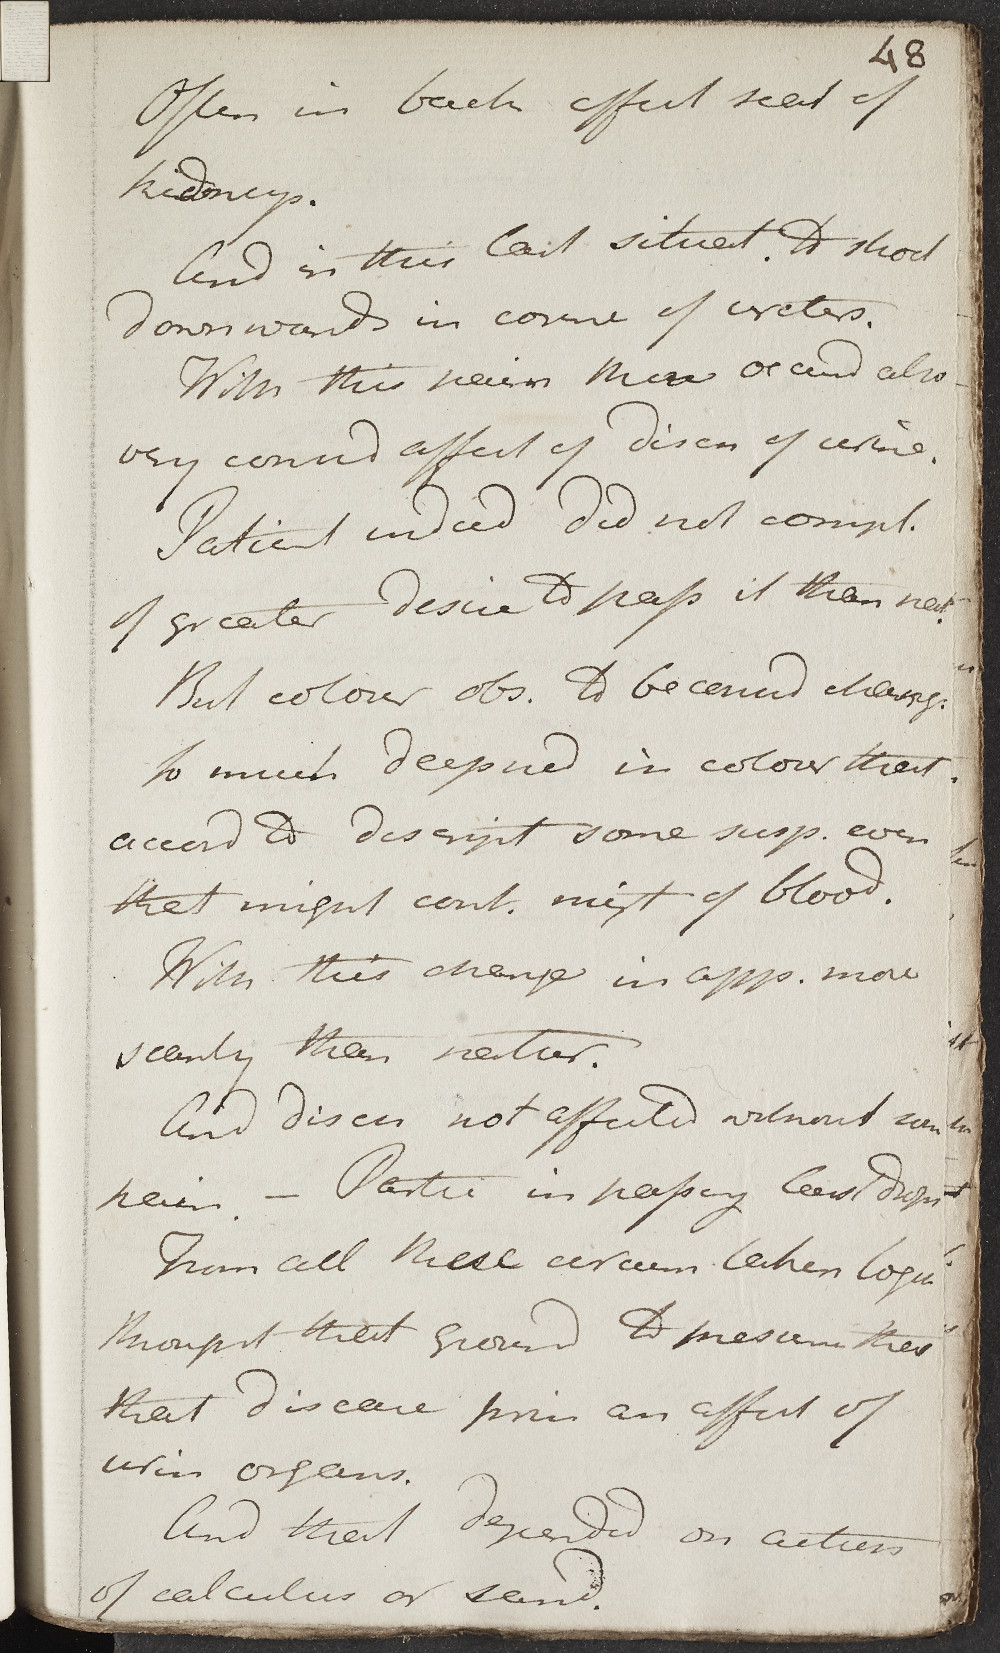 48
Often in back affect seat of
kidneys.
And in this last situat. to shoot
downwards in course of ureters.
With this pain there occurrd also
very consid affect of disch of urine.
Patient indeed did not compl.
of greater desire to pass it than nat.
But colour obs. to be consid chang.
so much deepned in colour that.
accord to descript some susp. even
that might cont. mixt of blood.
With this change in app. more
scanty than natur.
And disch not affected without som
pain. – Partic in passing last drops
From all these circum taken togr
thought that ground to presum ther
that disease prin an affect of
urin organs.
And that depended on action
of calculus or sand.